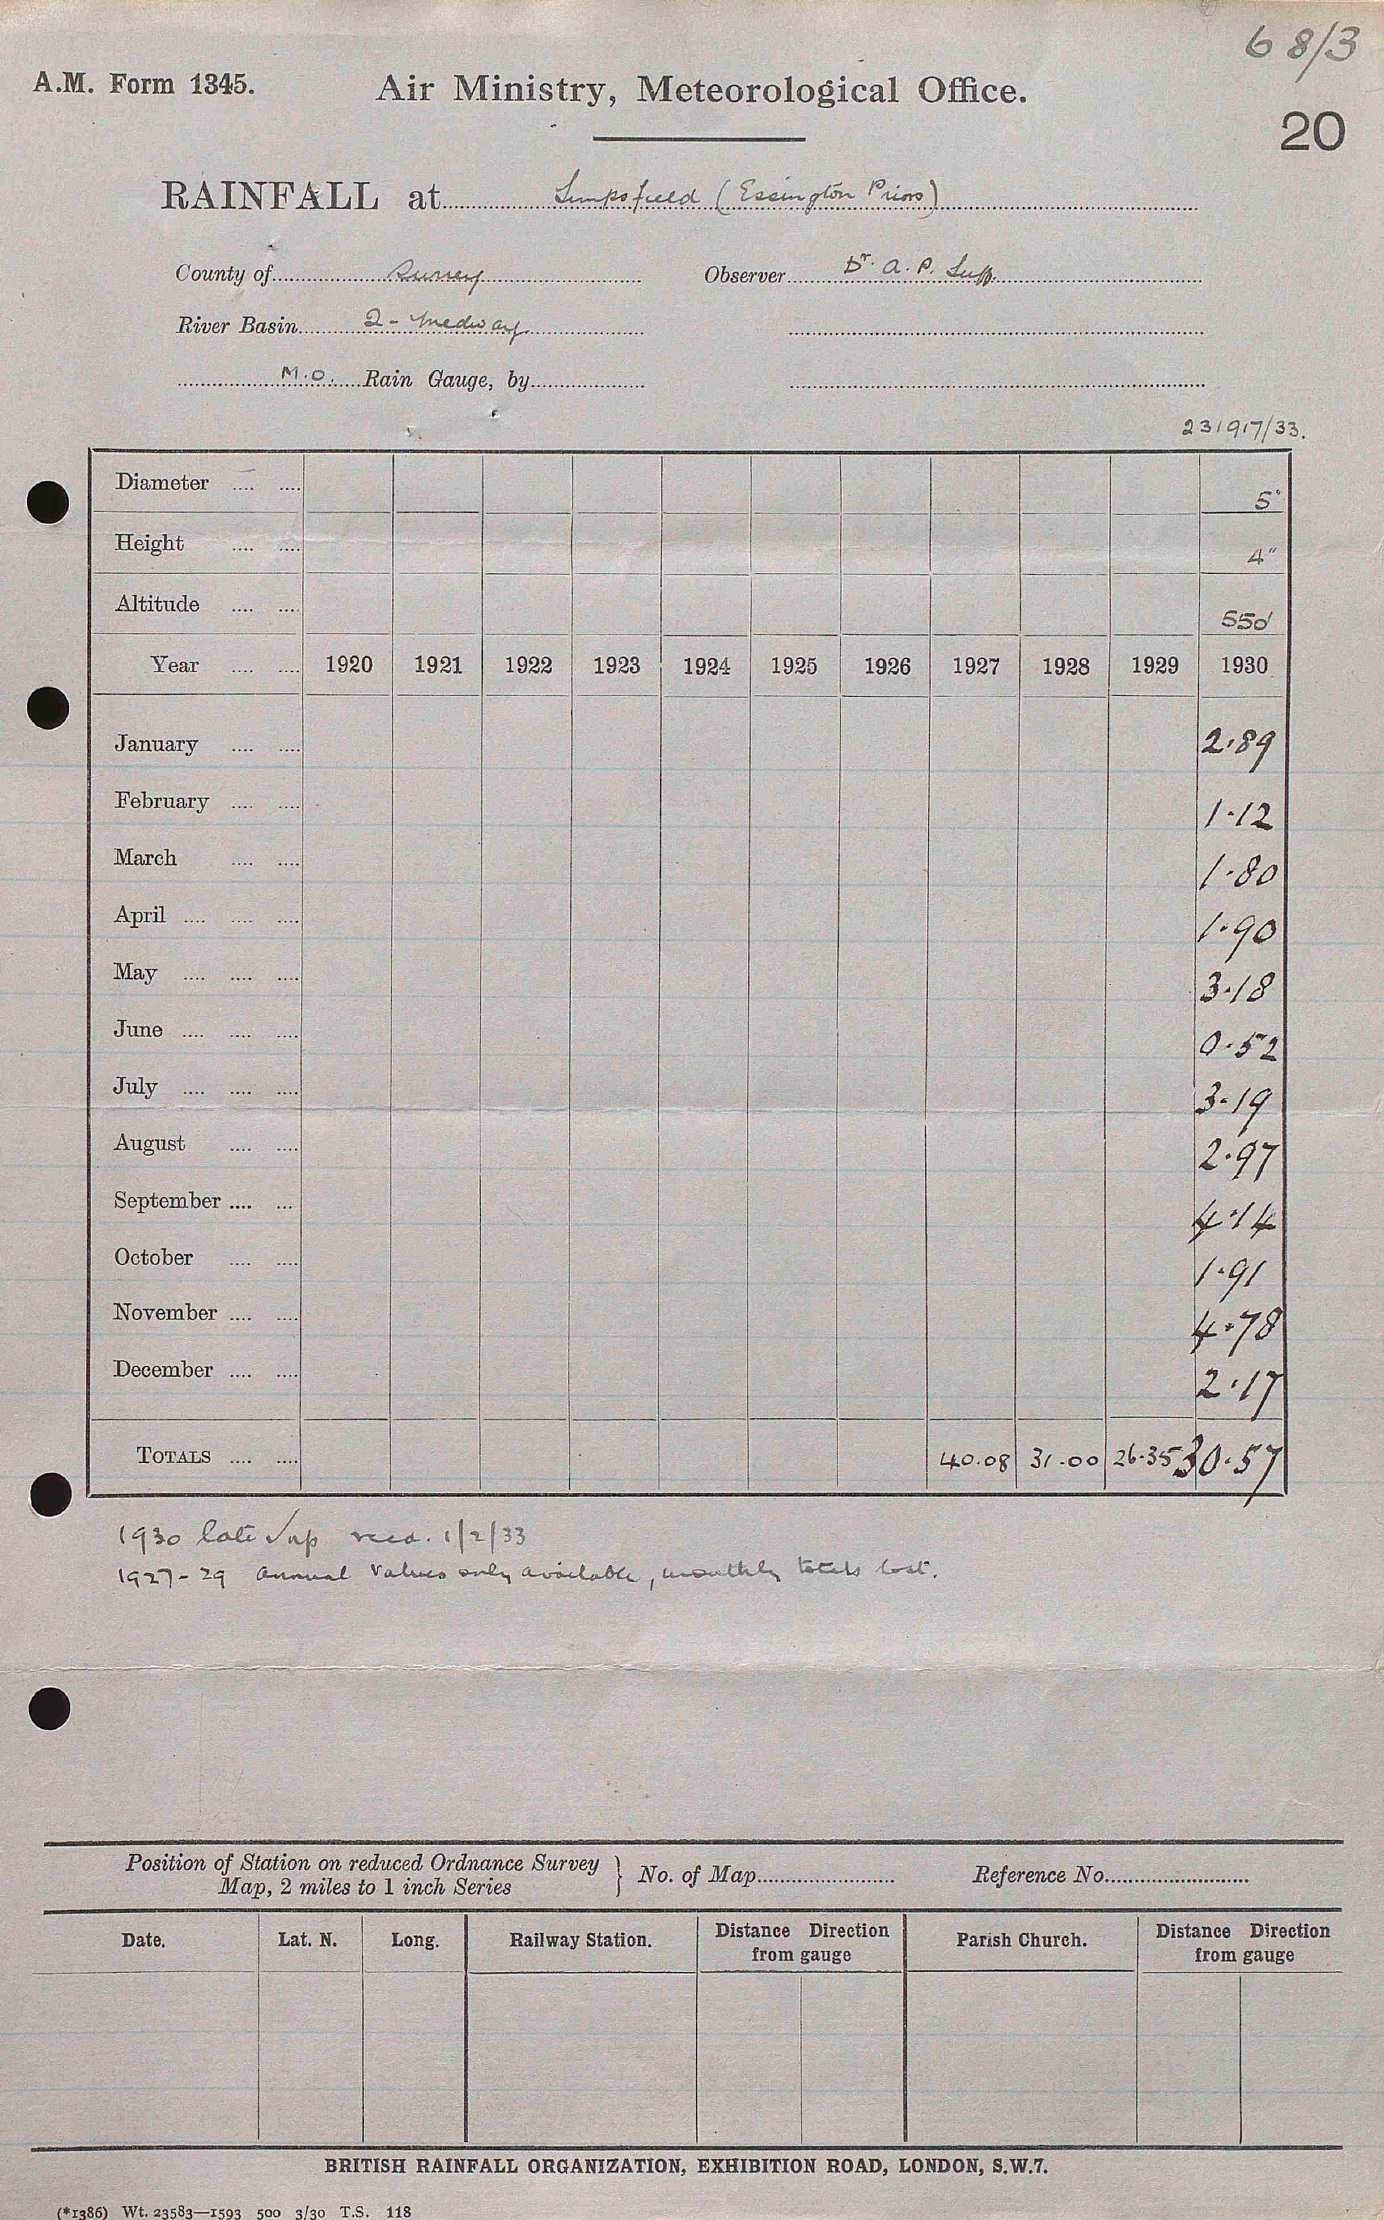 68/3
A.M. Form 1345. Air Ministry, Meteorological Office.
20
RAINFALL at Limpsfield (Essington Priors)
County of Surrey Observer Dr. A. P. Luff.
River Basin 2 - Medway
M.O. Rain Gauge, by
231917/33.
Diameter .... .... 5"
Height .... .... 4"
Altitude .... .... 550'
Year .... .... 1920 1921 1922 1923 1924 1925 1926 1927 1928 1929 1930
January .... .... 2.89
February .... .... 1.12
March .... .... 1.80
April .... .... .... 1.90
May .... .... .... 3.18
June .... .... .... 0.52
July .... .... .... 3.19
August .... .... 2.97
September .... ... 4.14
October .... .... 1.91
November .... .... 4.78
December .... .... 2.17
TOTALS .... .... 40.08 31.00 26.35 30.57
1930 late recd. 1/2/33
1927-29 annual values only available, monthly totals lost.
Position of Station on reduced Ordnance Survey
Map, 2 miles to 1 inch Series } No. of Map Reference No.
Date. Lat. N. Long. Railway Station. Distance Direction from gauge Parish Church. Distance Direction from gauge
BRITISH RAINFALL ORGANIZATION, EXHIBITION ROAD, LONDON, S.W.7.
(*1386) Wt. 23583—1593 500 3/30 T.S. 118